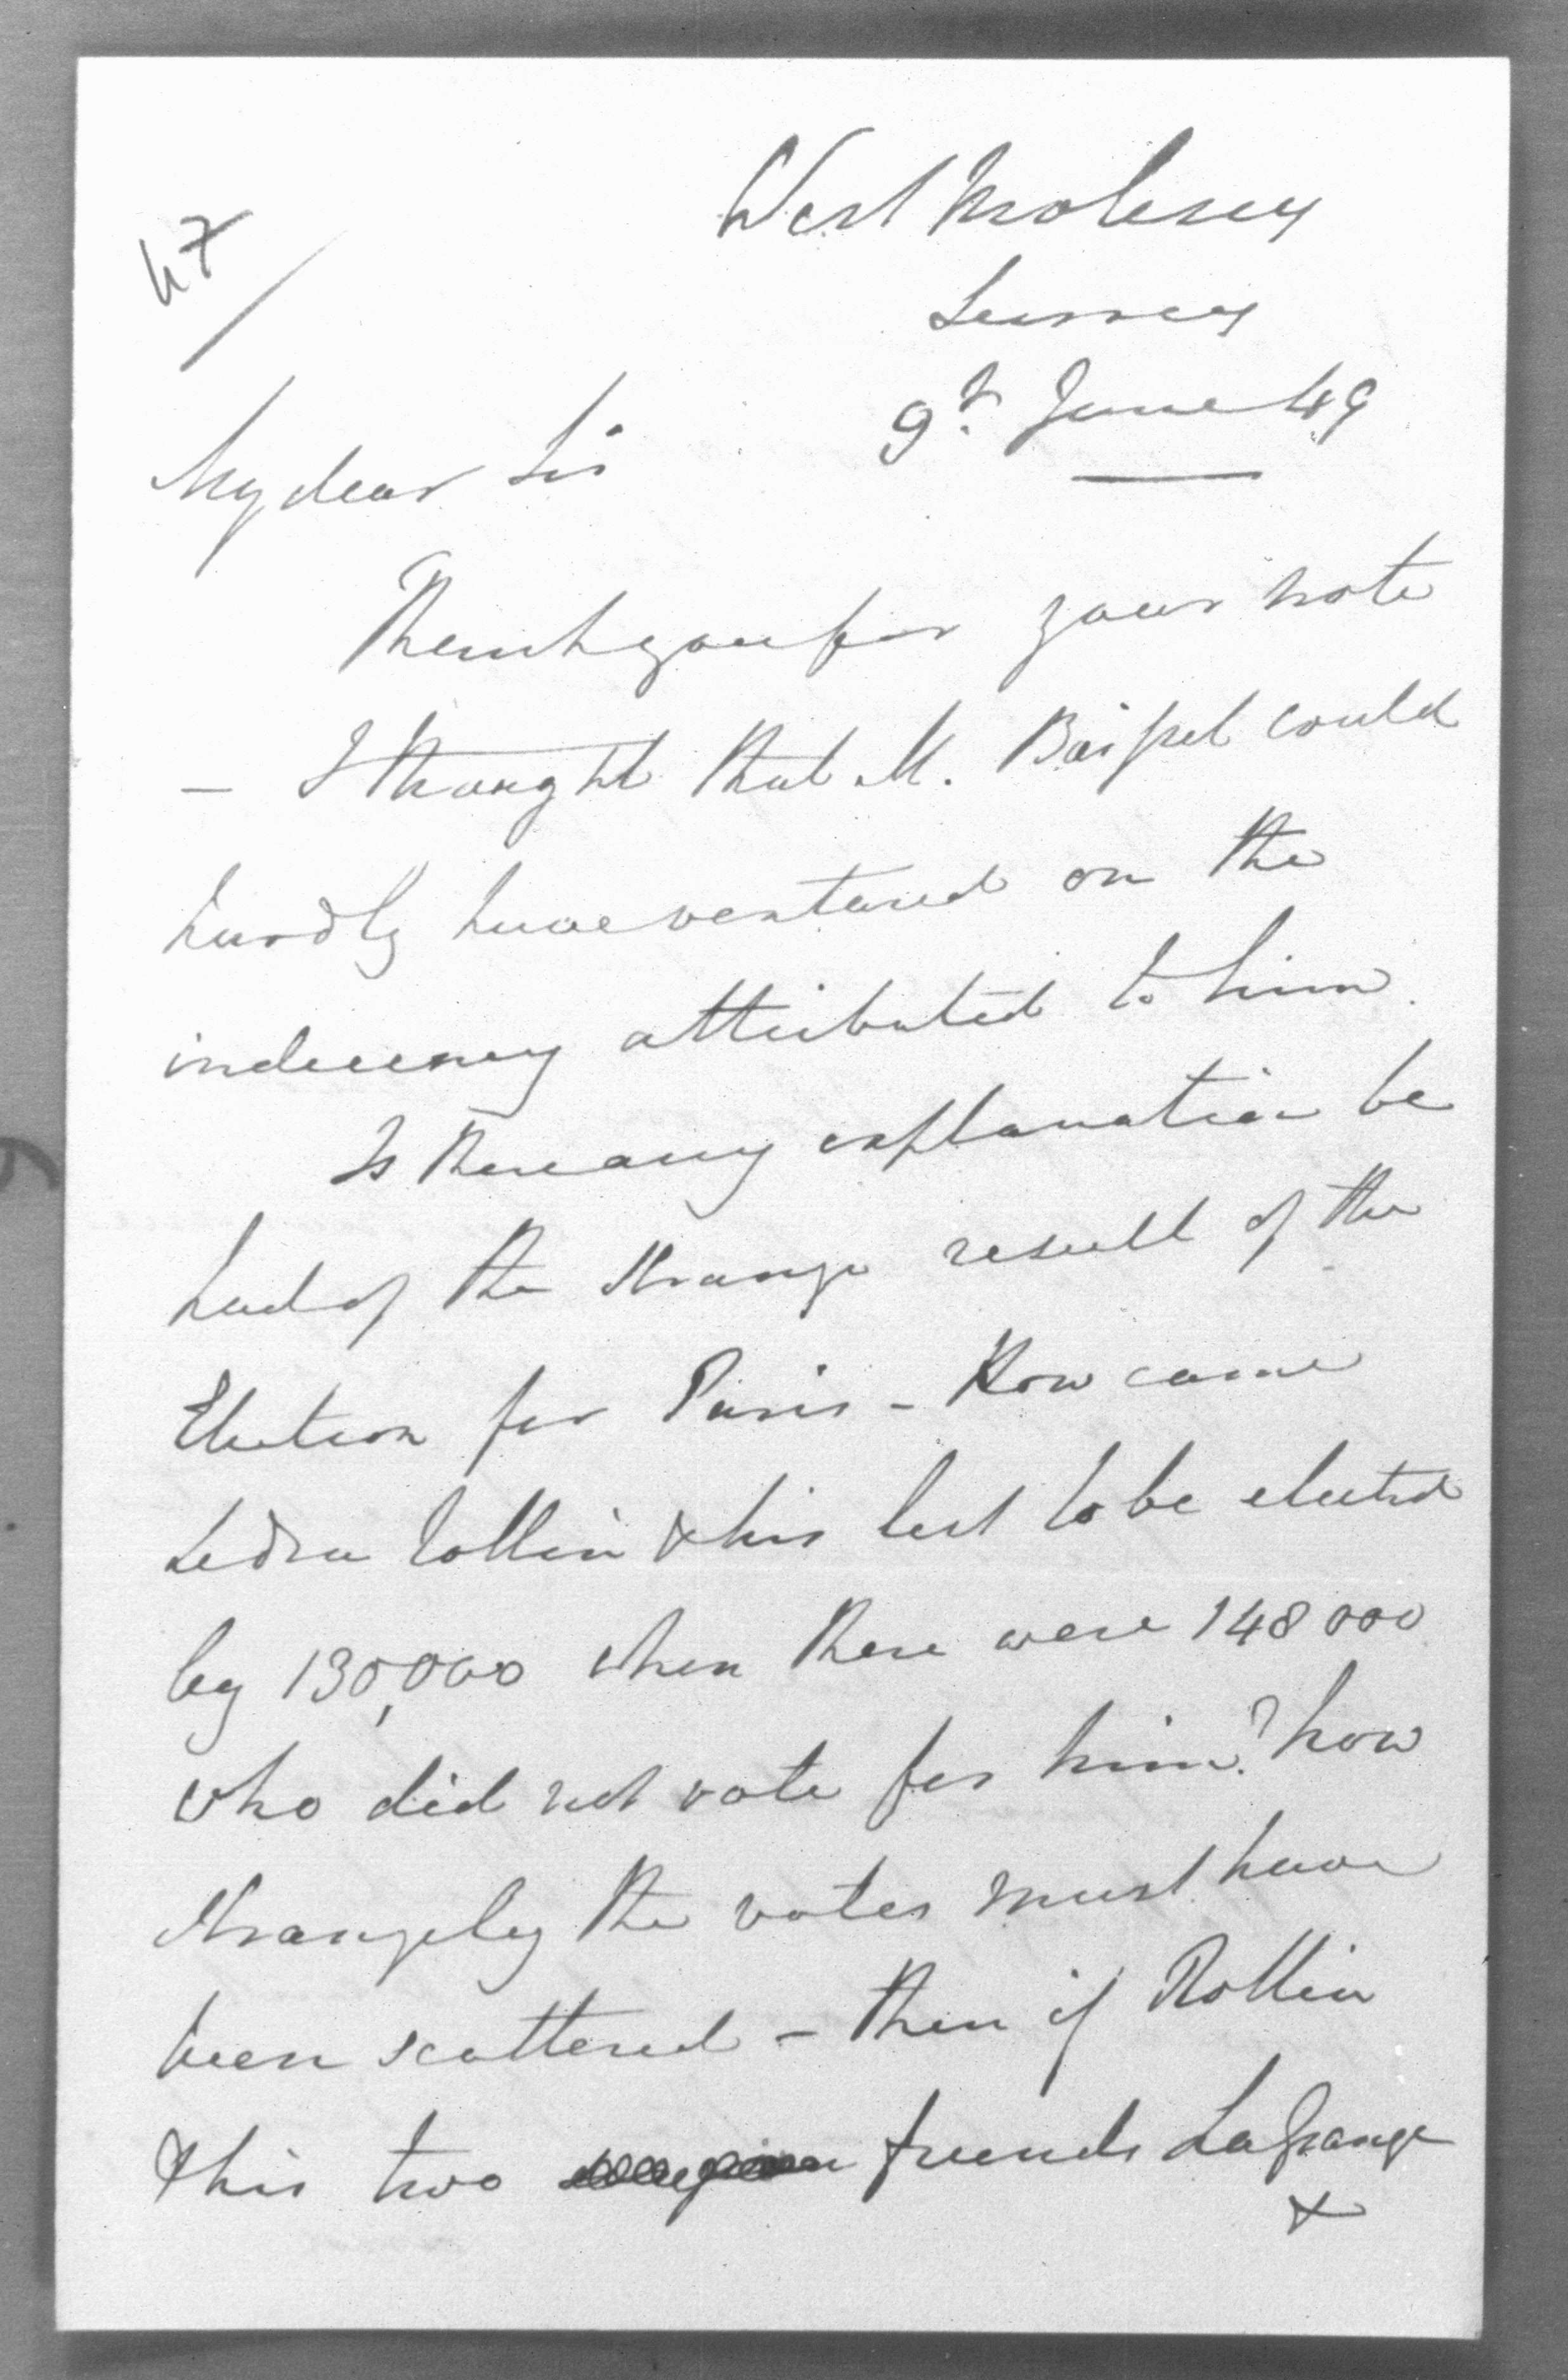 47
West Molesey
Surrey
9th June 49
My dear Sir
Thank you for your note
– I thought that M. could
hardly have ventured on the
indecency attributed to him.
Is there any explanation be
had of the strange result of the
Election for Paris – How came
Ledru Rollin & his list to be elected
by 130,000 when there were 148 000
who did not vote for him? how
strangely the votes must have
been scattered – then if Rollin
& his two friends Lagrange
&